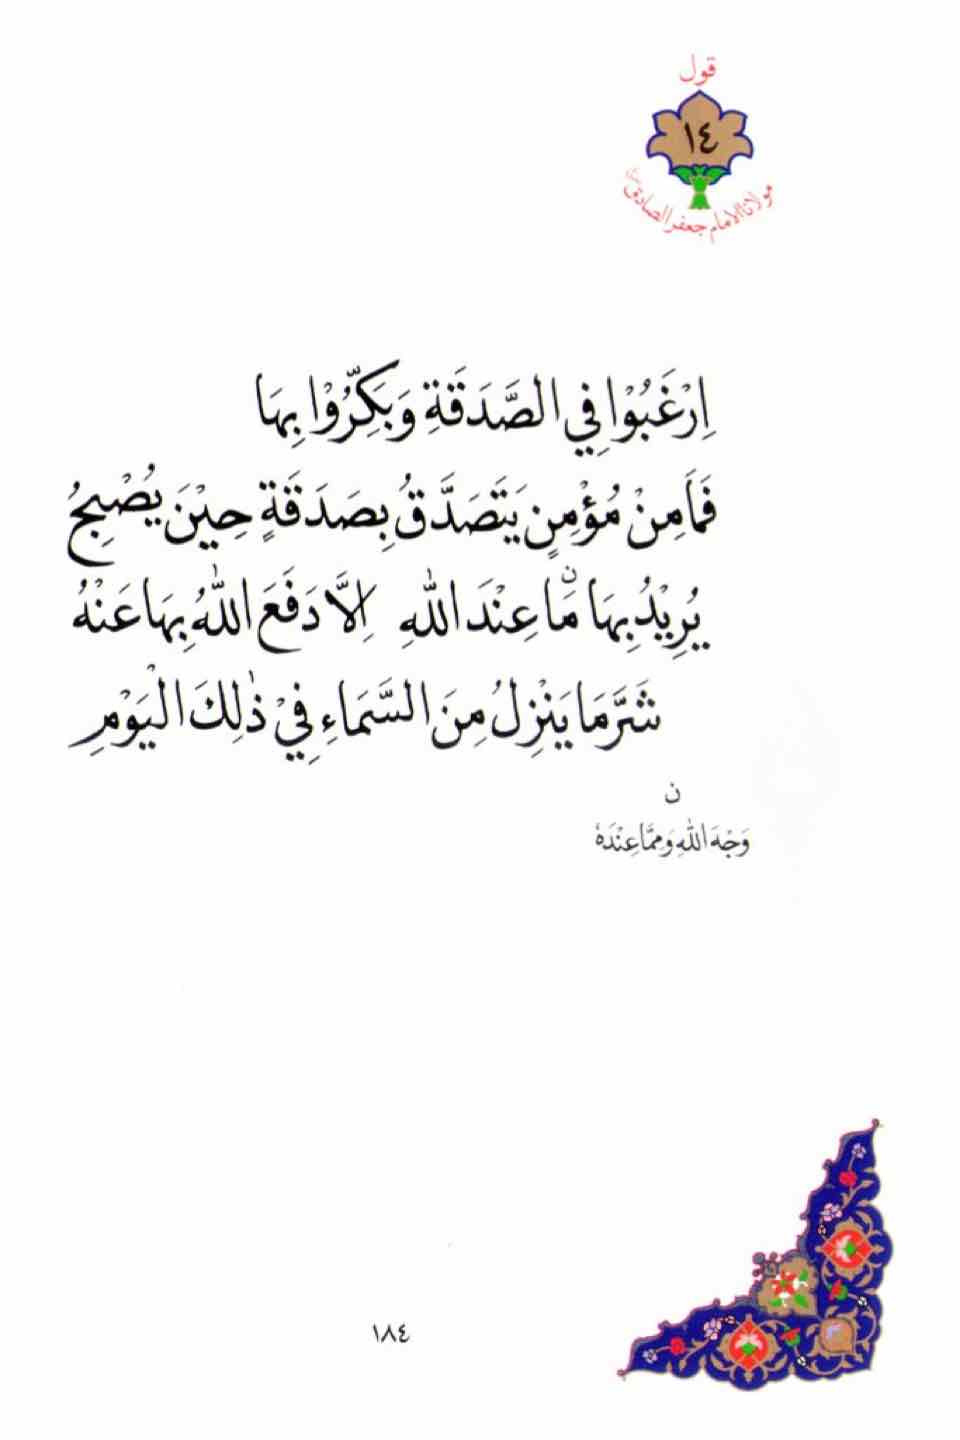 قول
١٤
مولانا الامام جعفر الصادق
اِرْغَبُوْا فِي الصَّدَقَةِ وَبَكِّرُوْا بِهَا
فَمَا مِنْ مُؤْمِنٍ يَتَصَدَّقُ بِصَدَقَةٍ حِيْنَ يُصْبِحُ
يُرِيْدُ بِهَا مَا عِنْدَ اللهِ اِلَّا دَفَعَ اللهُ بِهَا عَنْهُ
شَرَّ مَا يَنْزِلُ مِنَ السَّمَاءِ فِيْ ذٰلِكَ الْيَوْمِ
ن
وَجْهَ اللهِ وَمِمَّا عِنْدَهُ
١٨٤